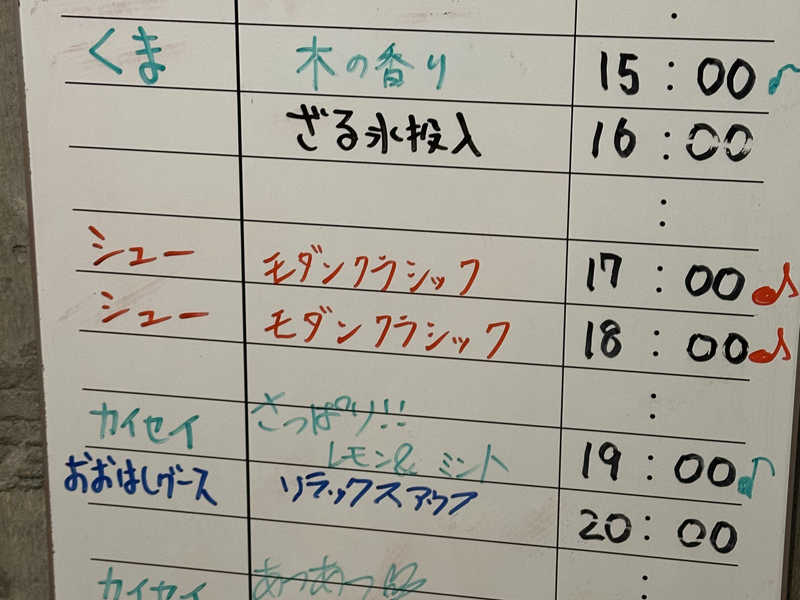 :
くま 木の香り 15:00♪
ざる氷投入 16:00
:
シュー モダンクラシック 17:00♪
シュー モダンクラシック 18:00♪
:
カイセイ さっぱり!!
レモン& ミント 19:00♪
おおはしグース リラックスアウフ 20:00
:
カイセイ あつあつ